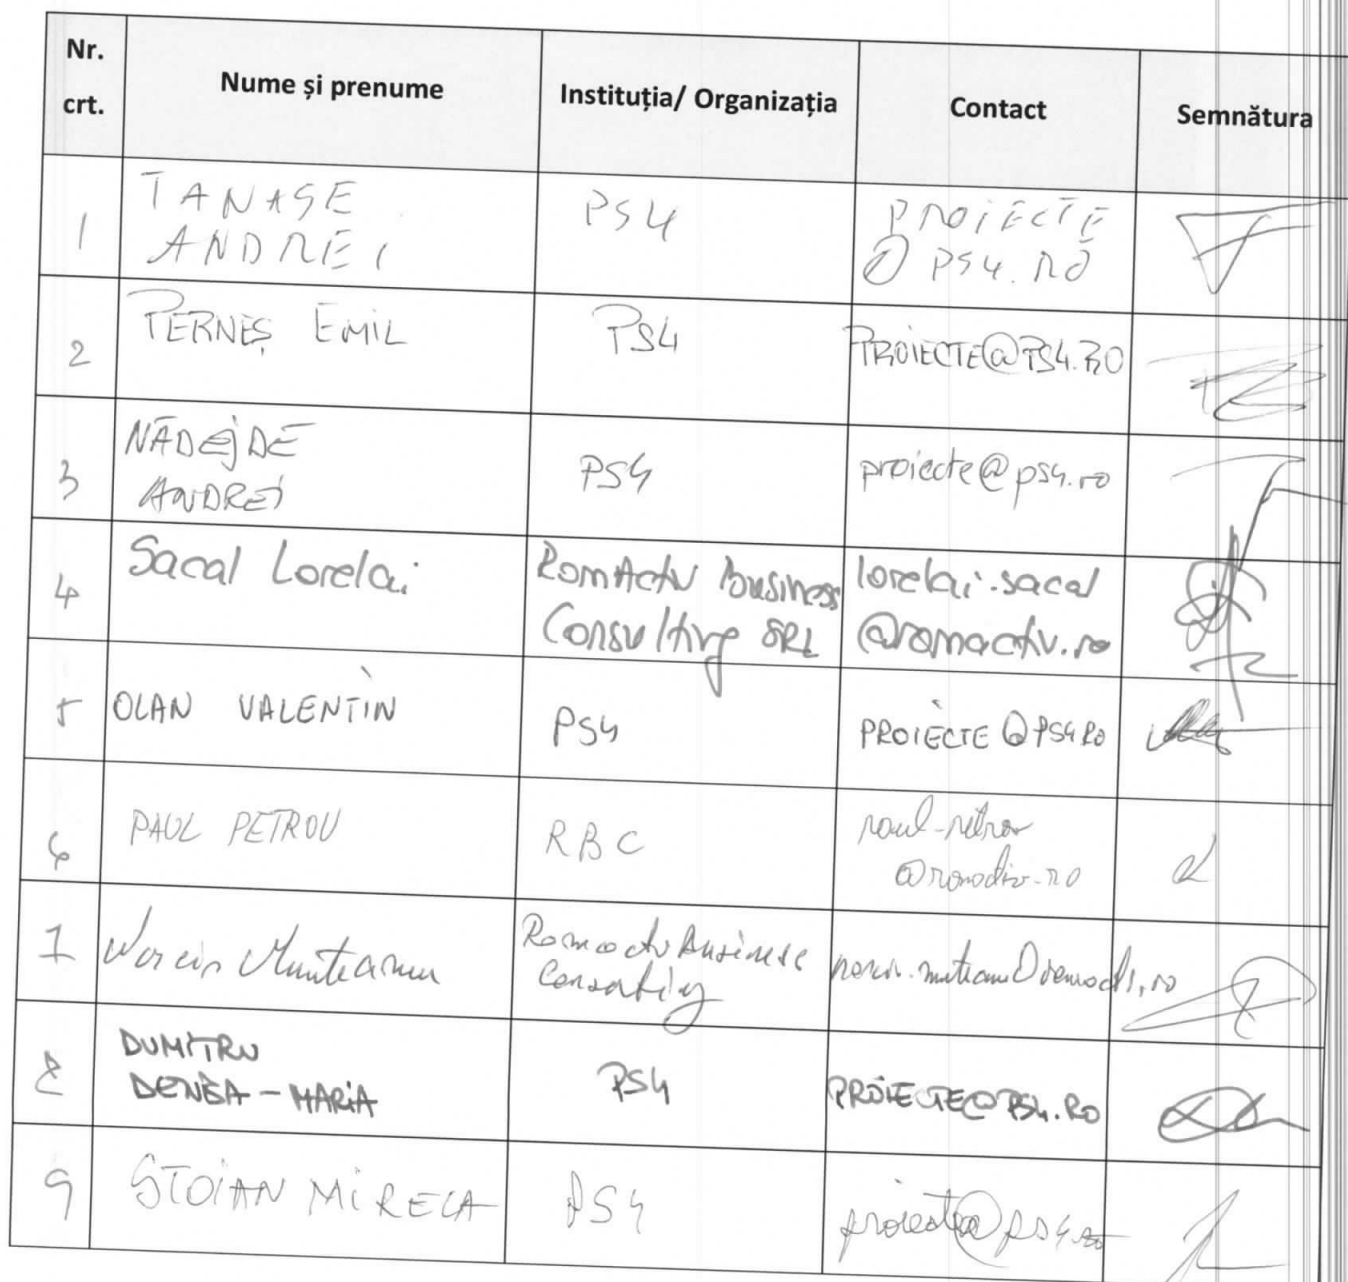 Nr. crt. Nume și prenume Instituția/ Organizația Contact Semnătura
1 TANASE ANDREI PS4 PROIECTE @ PS4.RO
2 PERNEȘ EMIL PS4 PROIECTE@PS4.RO
3 NĂDEJDE ANDREI PS4 proiecte@ps4.ro
4 Sacal Lorelai RomActiv Business Consulting SRL lorelai.sacal @romactiv.ro
5 OLAN VALENTIN PS4 PROIECTE @PS4.RO
6 PAUL PETROV RBC
7 Munteanu Romactiv Business Consulting
8 DUMITRU DENISA-MARIA PS4 PROIECTE@PS4.RO
9 STOIAN MIRELA PS4 proiecte@ps4.ro